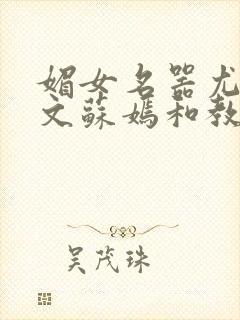 媚女名器尤
文蘇媽和教
吴茂珠